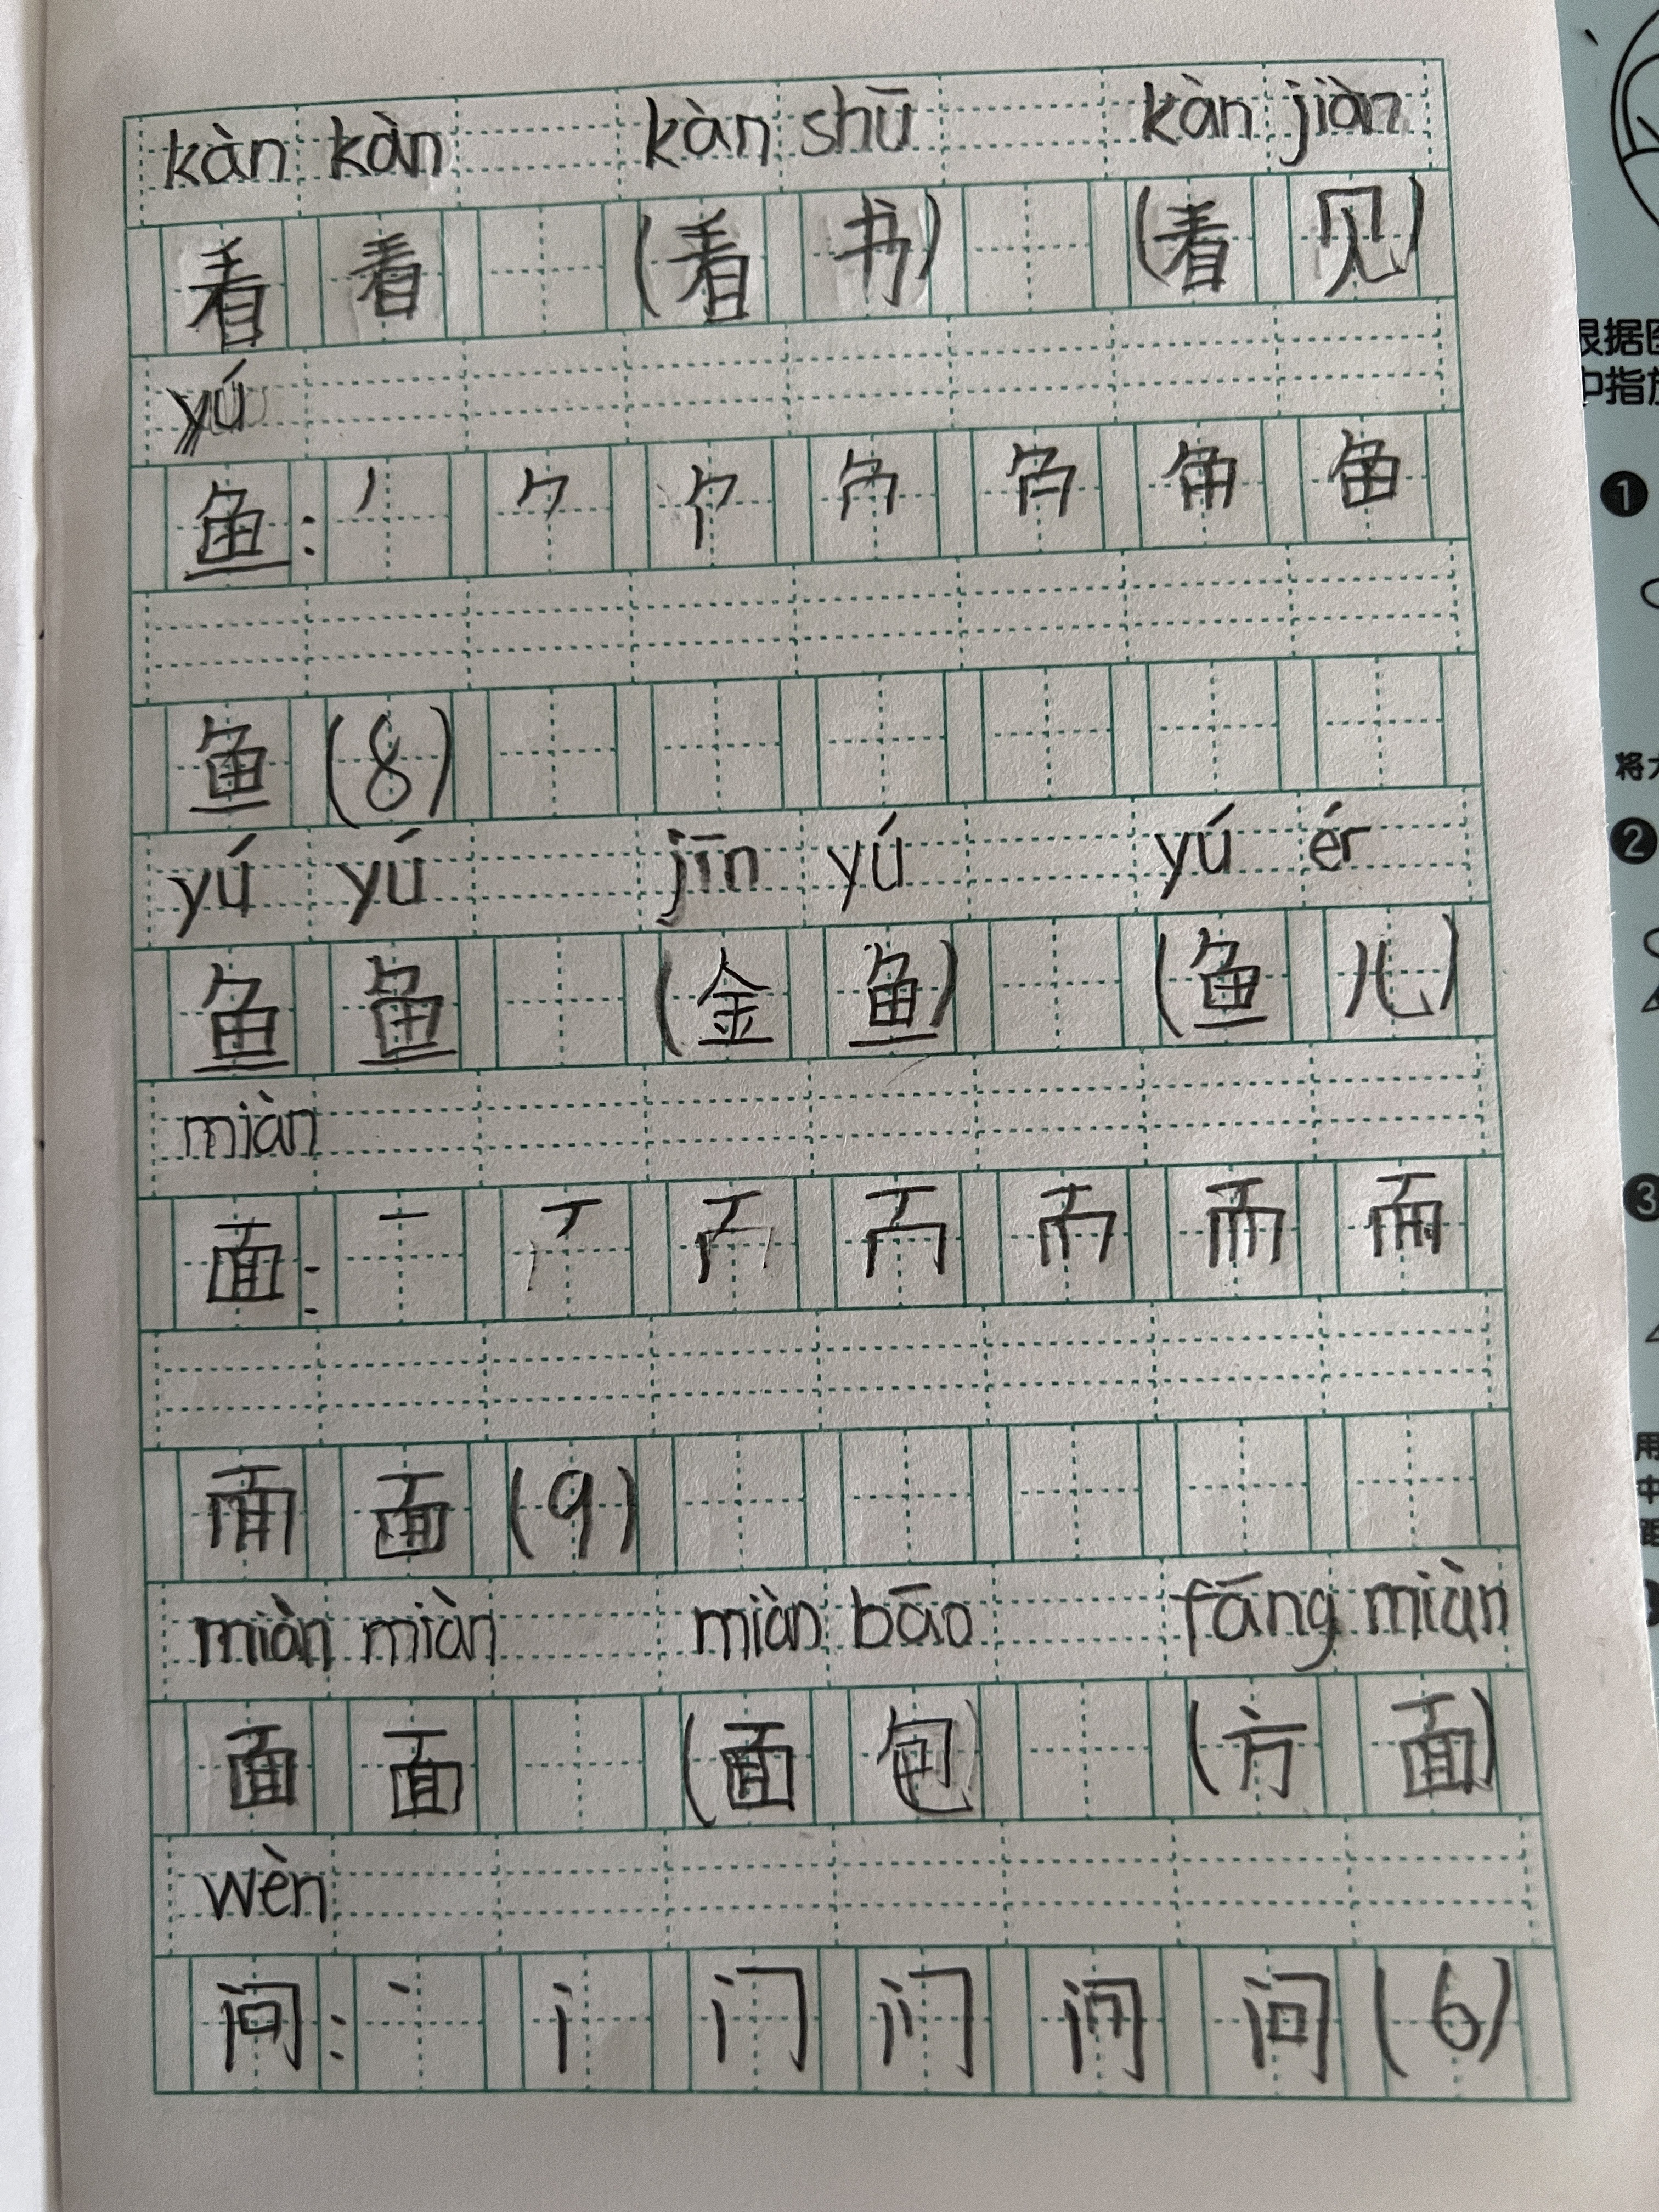 kàn kàn kàn shū kàn jiàn
看 看 (看 书) (看 见)
yú
鱼:
鱼 (8)
yú yú jīn yú yú ér
鱼 鱼 (金 鱼) (鱼 儿)
miàn
面: 一
面 (9)
miàn miàn miàn bāo fāng miàn
面 面 (面 包) (方 面)
wèn
问: 丶 门 问 (6)
根据
中指
1
将
2
3
用
中